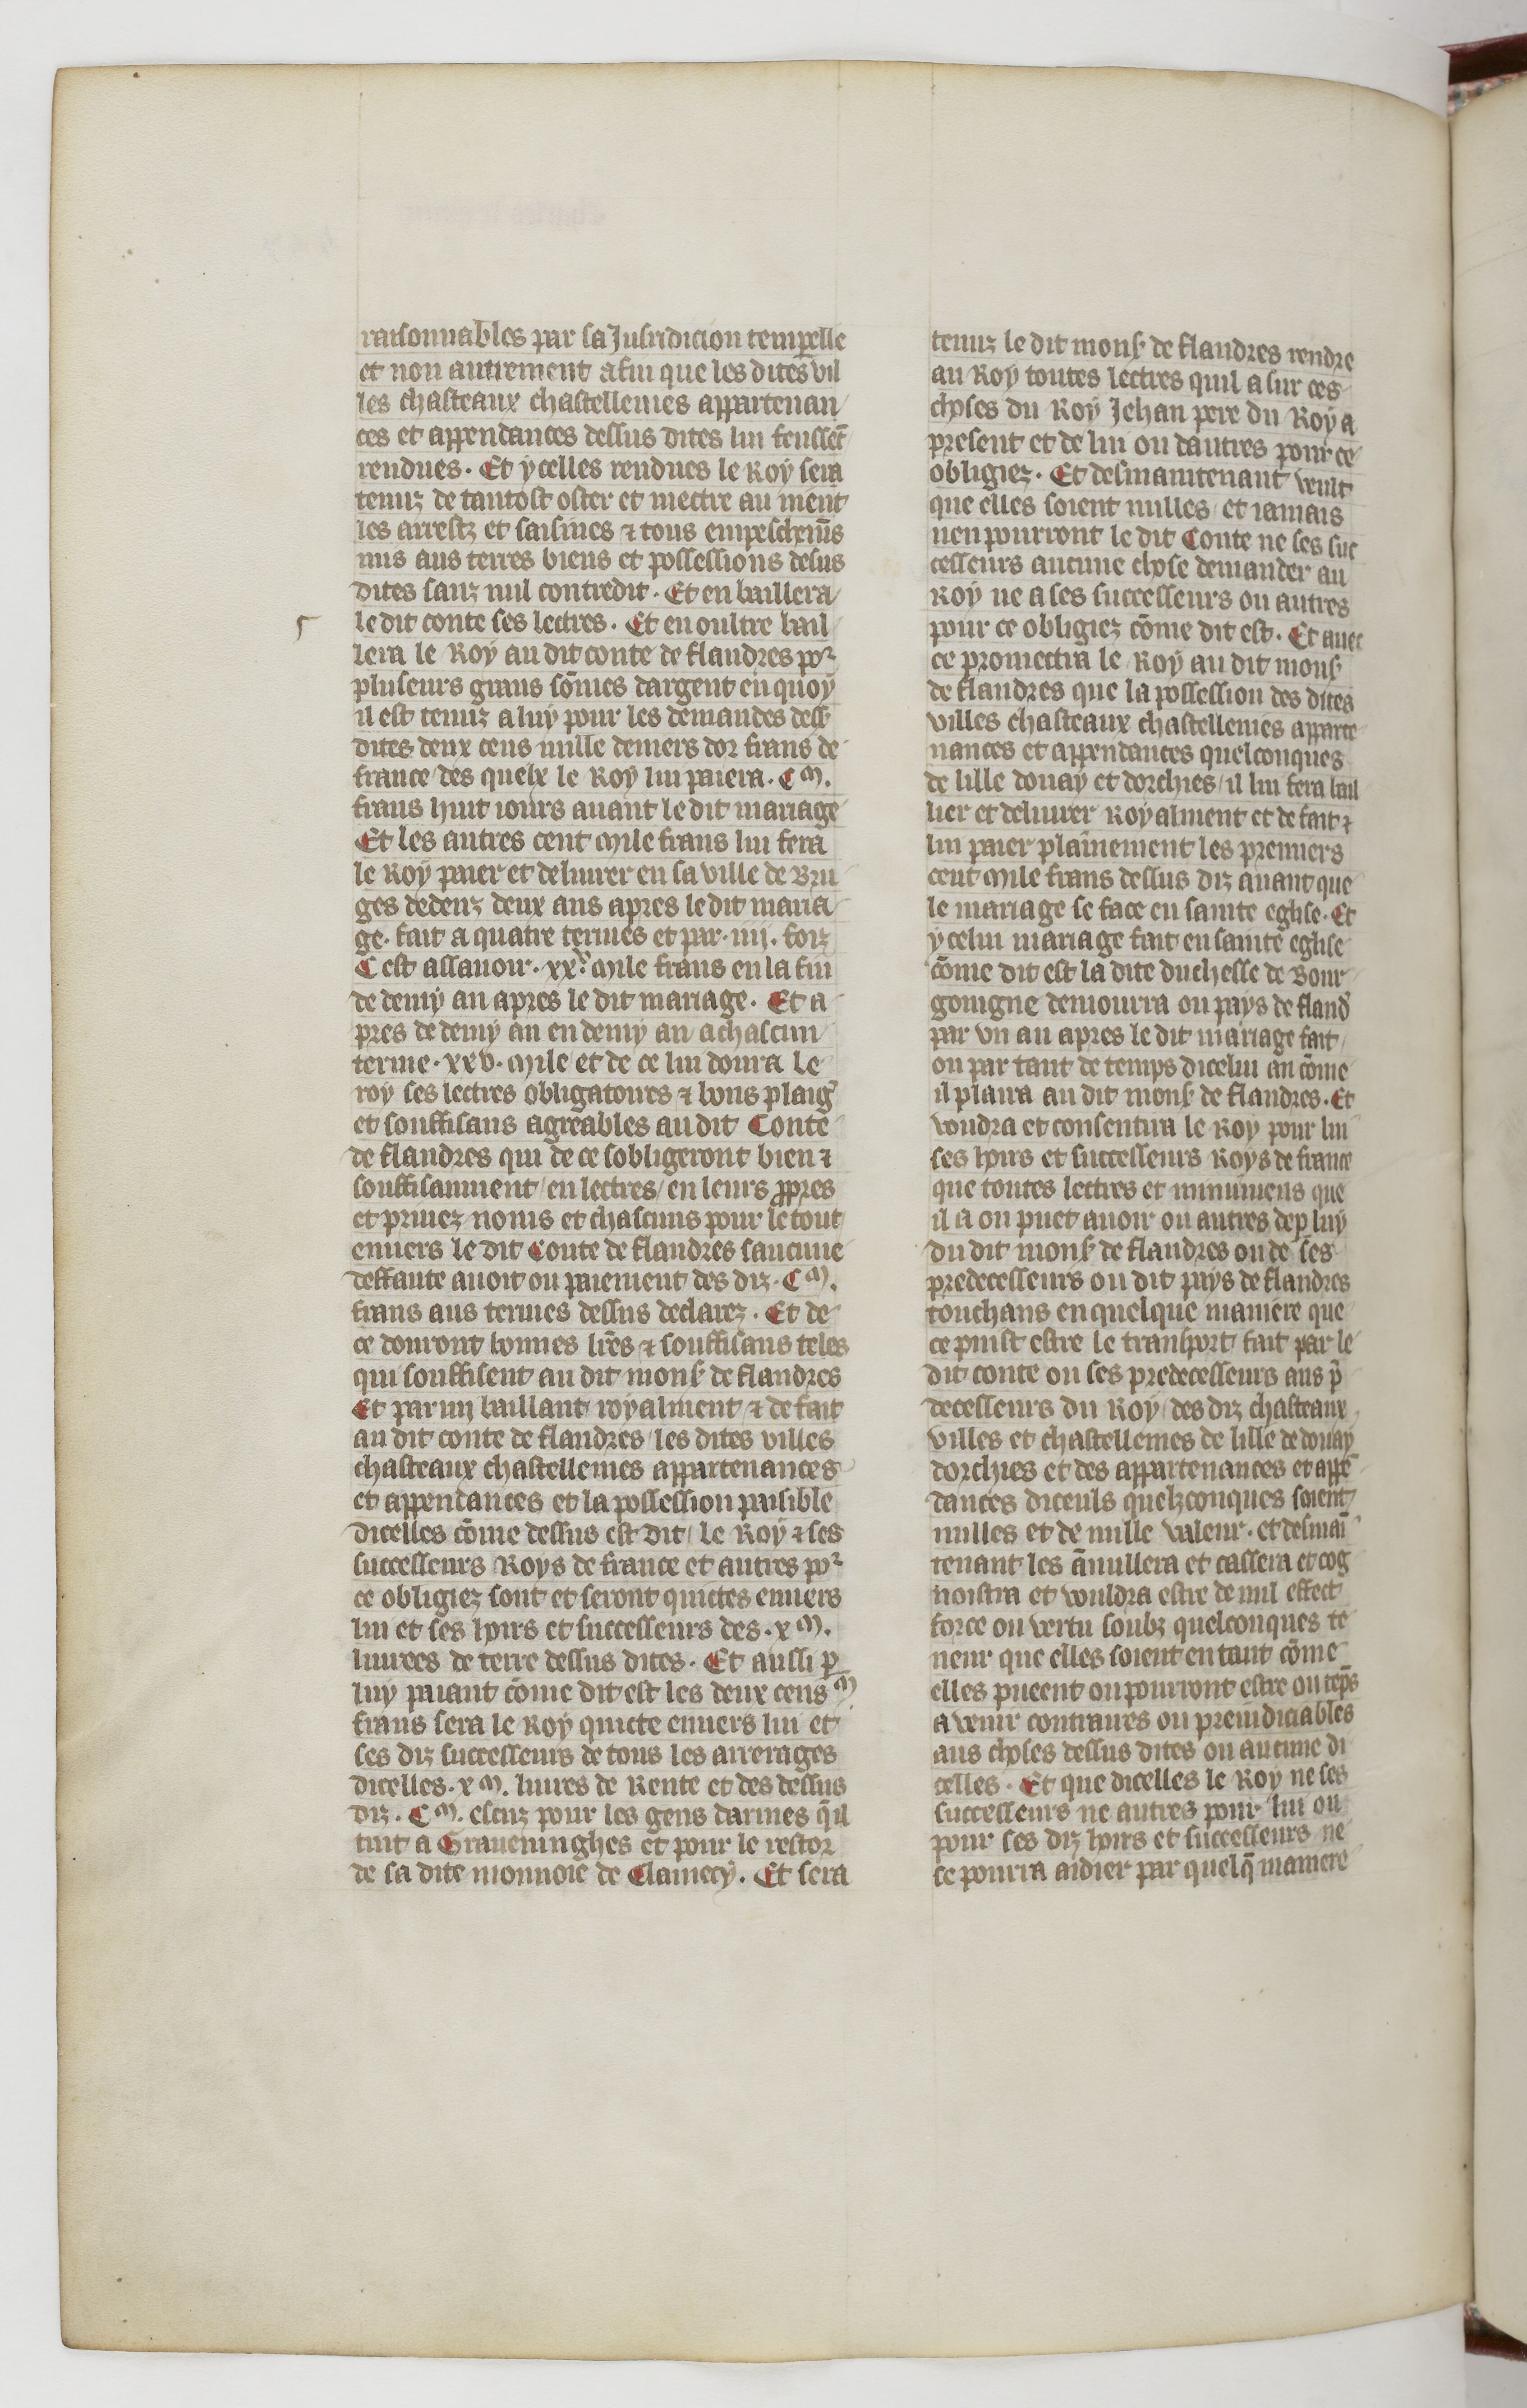 raisonnables par sa Jusridicion temporelle
et non autrement afin que les dites vil
les chasteaux chastellenies appartenan
ces et appendances dessus dites lui feusset̄
rendues. Et ycelles rendues le Roy sera
tenuz de tantost oster et mectre au nient
les arrestz et saisines ⁊ tous empeschemēs
mis aus terres biens et possessions desus
dites sanz nul contredit. Et en baillera
le dit conte ses lectres. Et en oultre bail
lera le Roy au dit conte de flandres por
pluseurs grans sōmes dargent en quoy
il est tenuz a luy pour les demandes dess
dites deux cens mille deniers dor frans de
france des quelx le Roy lui paiera. C M.
frans huit iours auant le dit mariage
Et les autres cent mile frans lui fera
le Roy paier et deliurer en sa ville de Bru
ges dedenz deux ans apres le dit maria
ge. fait a quatre termes et par .iiij. foiz
C est assauoir. xxv mile frans en la fin
de demy an apres le dit mariage. Et a
pres de demy an en demy an a chascun
terme .xxv. mile et de ce lui donra le
roy ses lectres obligatoires ⁊ bons plaiḡ
et souffisans agreables au dit Conte
de flandres qui de ce sobligeront bien ⁊
souffisanment en lectres en leurs ꝓpres
et priuez noms et chascuns pour le tout
enuers le dit Conte de flandres saucune
deffaute auoit ou paiement des diz. C M.
frans aus termes dessus declarez. Et de
ce donront bonnes lr̄es ⁊ souffisans teles
qui souffisent au dit mons̄ de flandres
Et parmy baillant royalment ⁊ de fait
au dit conte de flandres les dites villes
chasteaux chastellenies appartenances
et appendances et la possession paisible
dicelles cōme dessus est dit le Roy ⁊ ses
successeurs Roys de france et autres por
ce obligiez sont et seront quictes enuers
lui et ses hoirs et successeurs des. x M.
liurees de terre dessus dites. Et aussi ꝑ
luy paiant cōme dit est les deux cens M
frans sera le Roy quicte enuers lui et
ses diz successeurs de tous les arrerages
dicelles. x M. liures de Rente et des dessus
diz. C M. escuz pour les gens darmes q̄il
tint a Graueninghes et pour le restor
de sa dite monnoie de Clamecy. Et sera
tenuz le dit mons̄ de flandres rendre
au Roy toutes lectres quil a sur ces
choses du Roy Jehan pere du Roy a
present et de lui ou dautres pour ce
obligiez. Et desmaintenant veult
que elles soient nulles et iamais
nen pourront le dit Conte ne ses suc
cesseurs aucune chose demander au
Roy ne a ses successeurs ou autres
pour ce obligiez cōme dit est. Et auec
ce promectra le Roy au dit mons̄
de flandres que la possession des dites
villes chasteaux chastellenies apparte
nances et appendances quelconques
de lille douay et dorchies il lui fera bail
lier et deliurer Royalment et de fait ⁊
lui paier plainement les premiers
cent mile frans dessus diz auant que
le mariage se face en sainte eglise. Et
ycelui mariage fait en sainte eglise
cōme dit est la dite duchesse de Bour
gongne demourra ou pays de fland̄
par vn an apres le dit mariage fait
ou par tant de temps dicelui an cōme
il plaira au dit mons̄ de flandres. Et
voudra et consentira le Roy pour lui
ses hoirs et successeurs Roys de france
que toutes lectres et munimens que
il a ou puet auoir ou autres dep luy
du dit mons̄ de flandres ou de ses
predecesseurs ou dit pays de flandres
touchans en quelque maniere que
ce puist estre le transport fait par le
dit conte ou ses predecesseurs aus p̄
decesseurs du Roy des diz chasteaux
villes et chastellenies de lille de douay
dorchies et des appartenances et appē
dances diceuls quelzconques soient
nulles et de nulle valeur. et desmaī
tenant les ānullera et cassera et cog
noistra et vouldra estre de nul effect
force ou vertu soubz quelconques te
neur que elles soient en tant cōme
elles pueent ou pourront estre ou tēps
a venir contraires ou preiudiciables
aus choses dessus dites ou aucune di
celles. Et que dicelles le Roy ne ses
successeurs ne autres pour lui ou
pour ses diz hoirs et successeurs ne
se pourra aidier par quelq̄ maniere